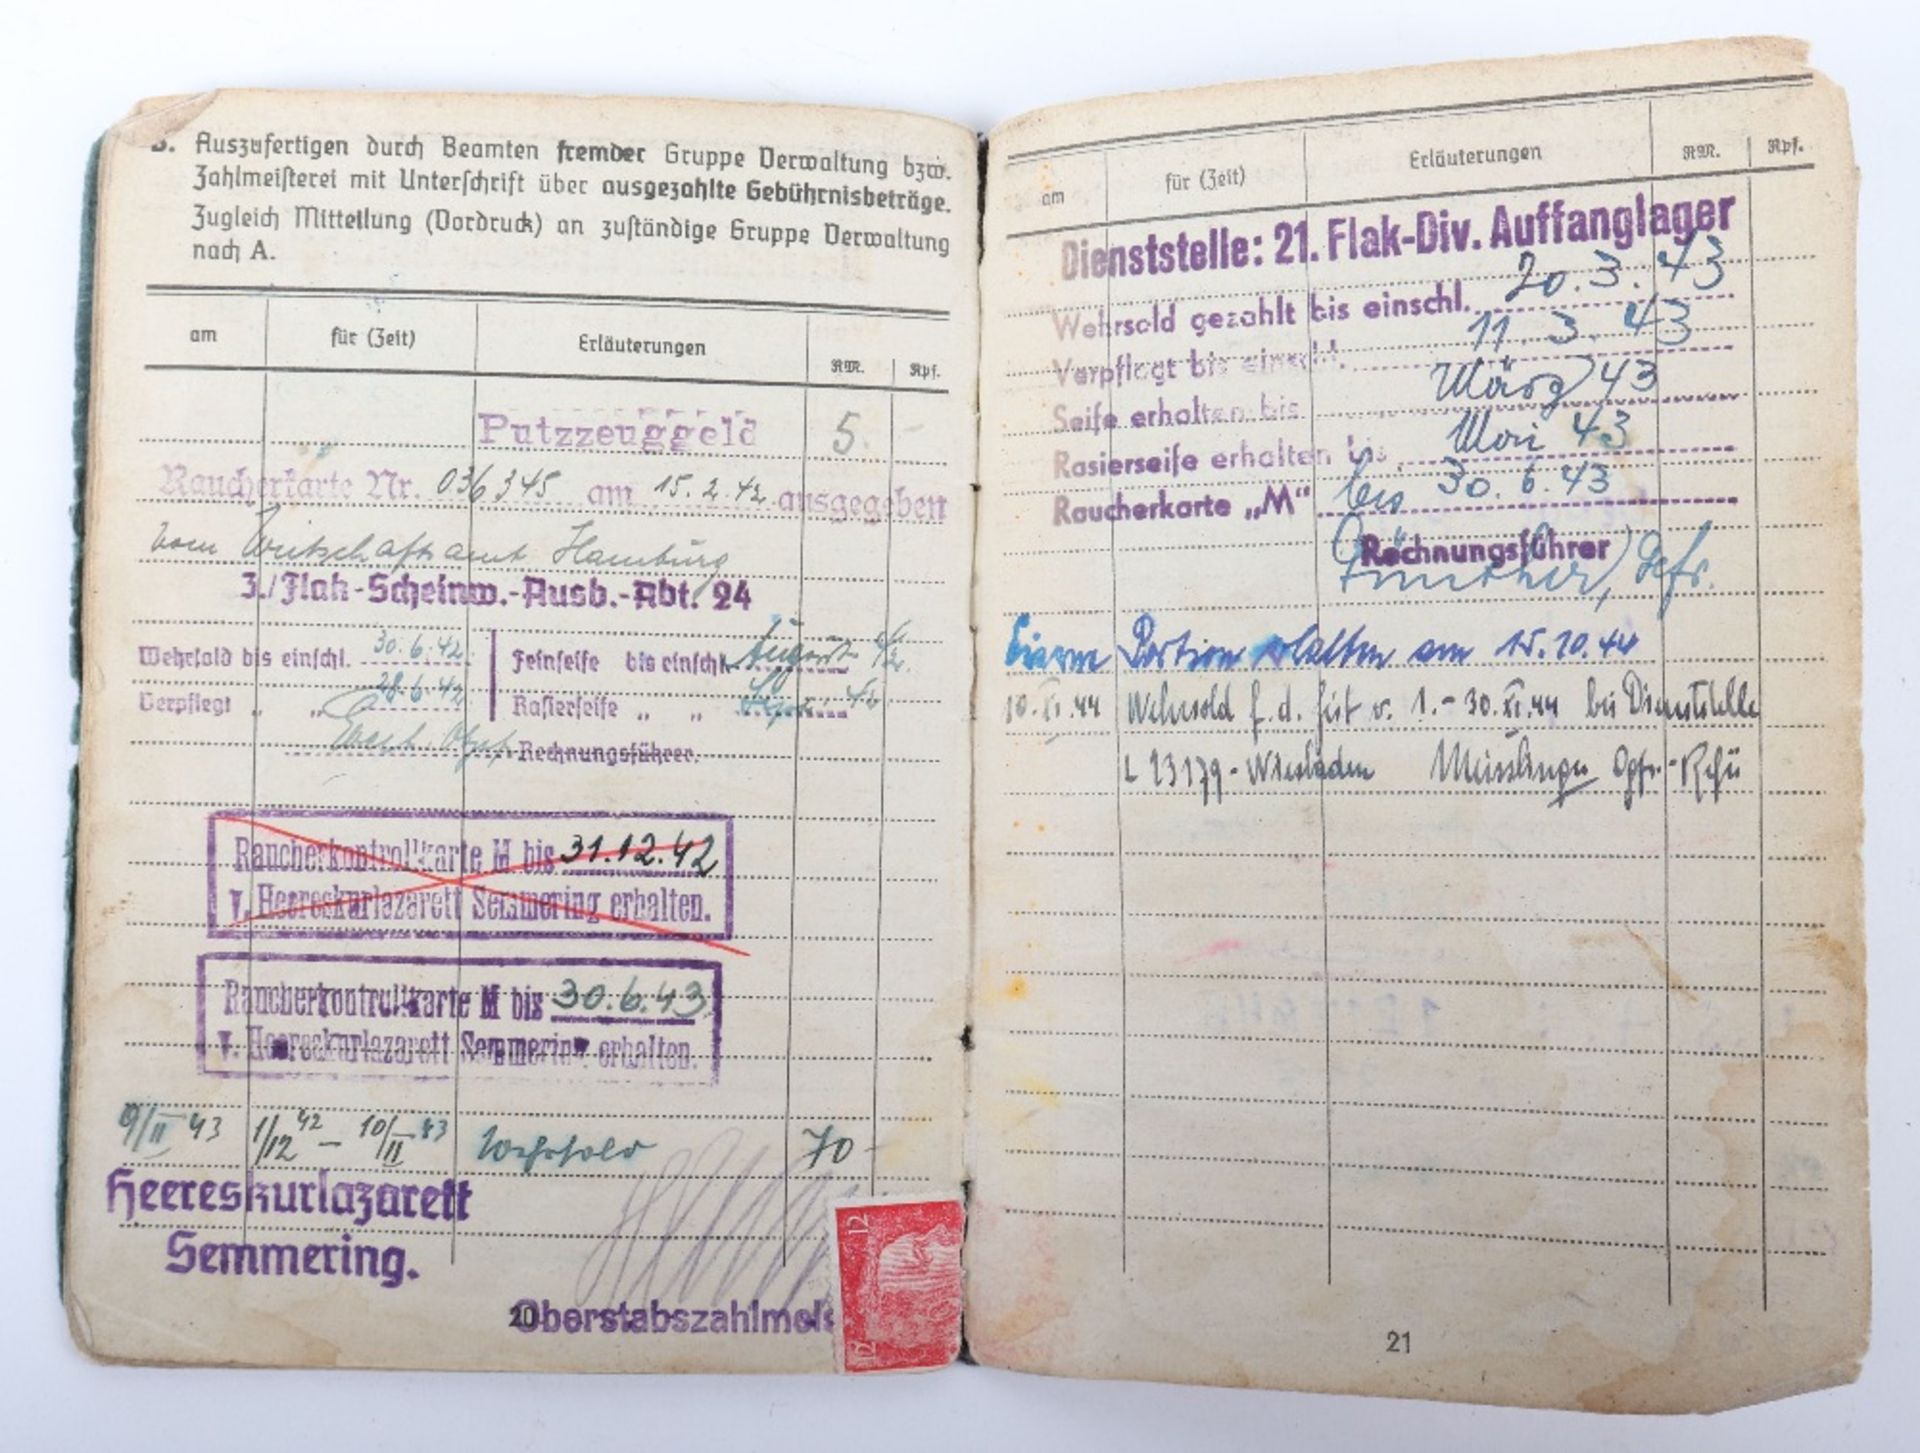 B. Auszufertigen durch Beamten fremder Gruppe Verwaltung bzw.
Zahlmeisterei mit Unterschrift über ausgezahlte Gebührnisbeträge.
Zugleich Mitteilung (Vordruck) an zuständige Gruppe Verwaltung
nach A.
am für (Zeit) Erläuterungen RM. Rpf.
Putzzeuggeld 5. -
Raucherkarte Nr. 036345 am 15.2.42 ausgegeben
vom Wirtschaftsamt Hamburg
3./Flak-Scheinw.-Ausb.-Abt. 24
Wehrsold bis einschl. 30.6.42 Feinseife bis einschl. August 42
Verpflegt " " 28.6.42 Rasierseife " " 42
Rechnungsführer.
Raucherkontrollkarte M bis 31.12.42
v. Heereskurlazarett Semmering erhalten.
Raucherkontrollkarte M bis 30.6.43
v. Heereskurlazarett Semmering erhalten.
9/II 43 1/12 42 - 10/II 43 Wehrsold 70 -
Heereskurlazarett
Semmering.
20
Oberstabszahlmeis
12
12
am für (Zeit) Erläuterungen RM. Rpf.
Dienststelle: 21. Flak-Div. Auffanglager
Wehrsold gezahlt bis einschl. 20.3.43
Verpflegt bis einschl. 11.3.43
Seife erhalten bis März 43
Rasierseife erhalten bis Mai 43
Raucherkarte „M“ bis 30.6.43
Rechnungsführer
Günther, Gefr.
Eiserne Portion erhalten am 15.10.44
10.XI.44 Wehrsold f. d. Zeit v. 1.-30.XI.44 bei Dienststelle
L 23179 - Wiesbaden Ogfr.-Refü
21